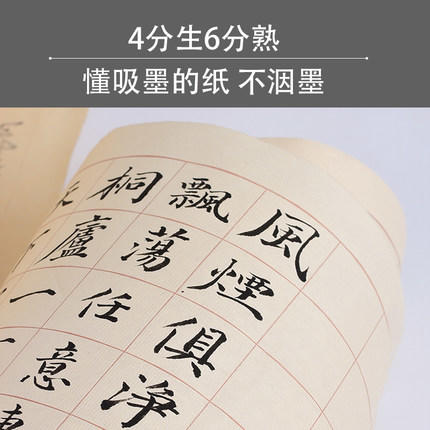 4分生6分熟
懂吸墨的纸 不洇墨
風煙俱淨
飄蕩任意
桐廬一